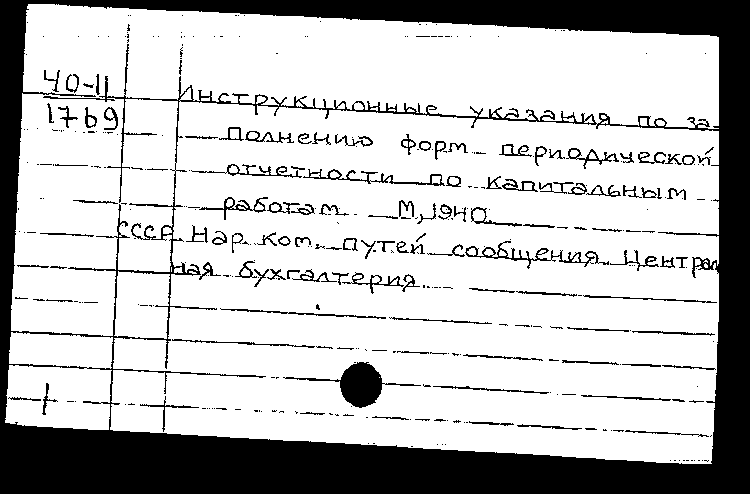 40-11
1769
Инструкционные указания по за-
полнению форм периодической
отчетности по капитальным
работам. М, 1940.
СССР. Нар. ком. путей сообщения. Централь
ная бухгалтерия.
1